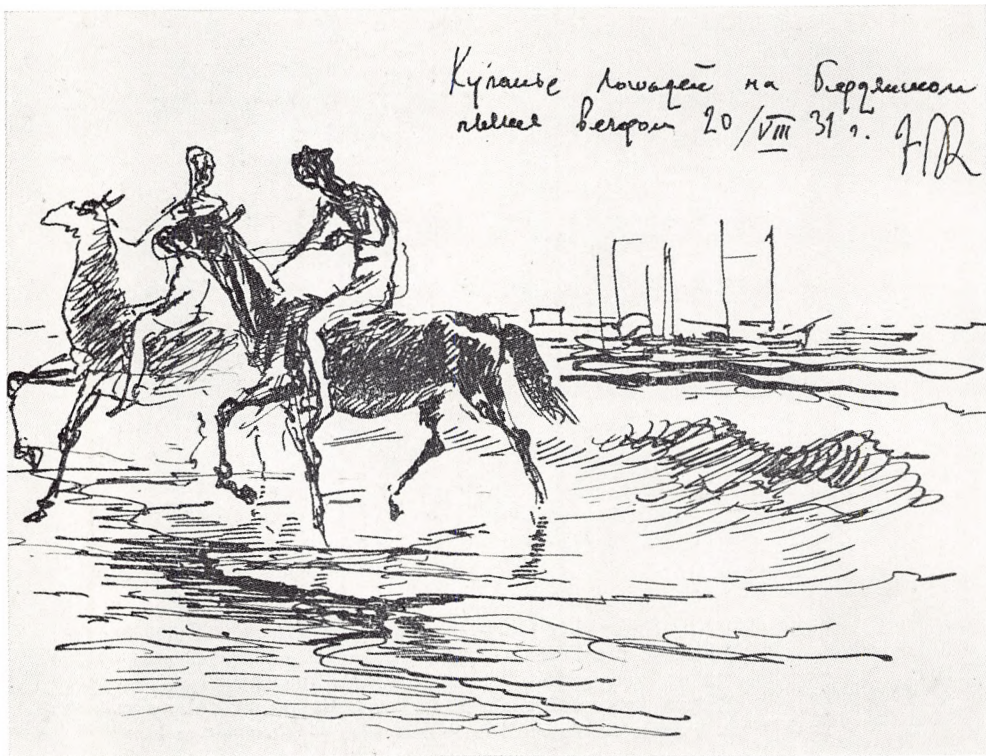 Купанье лошадей на Бердянском
пляже вечером 20/VIII 31 г.